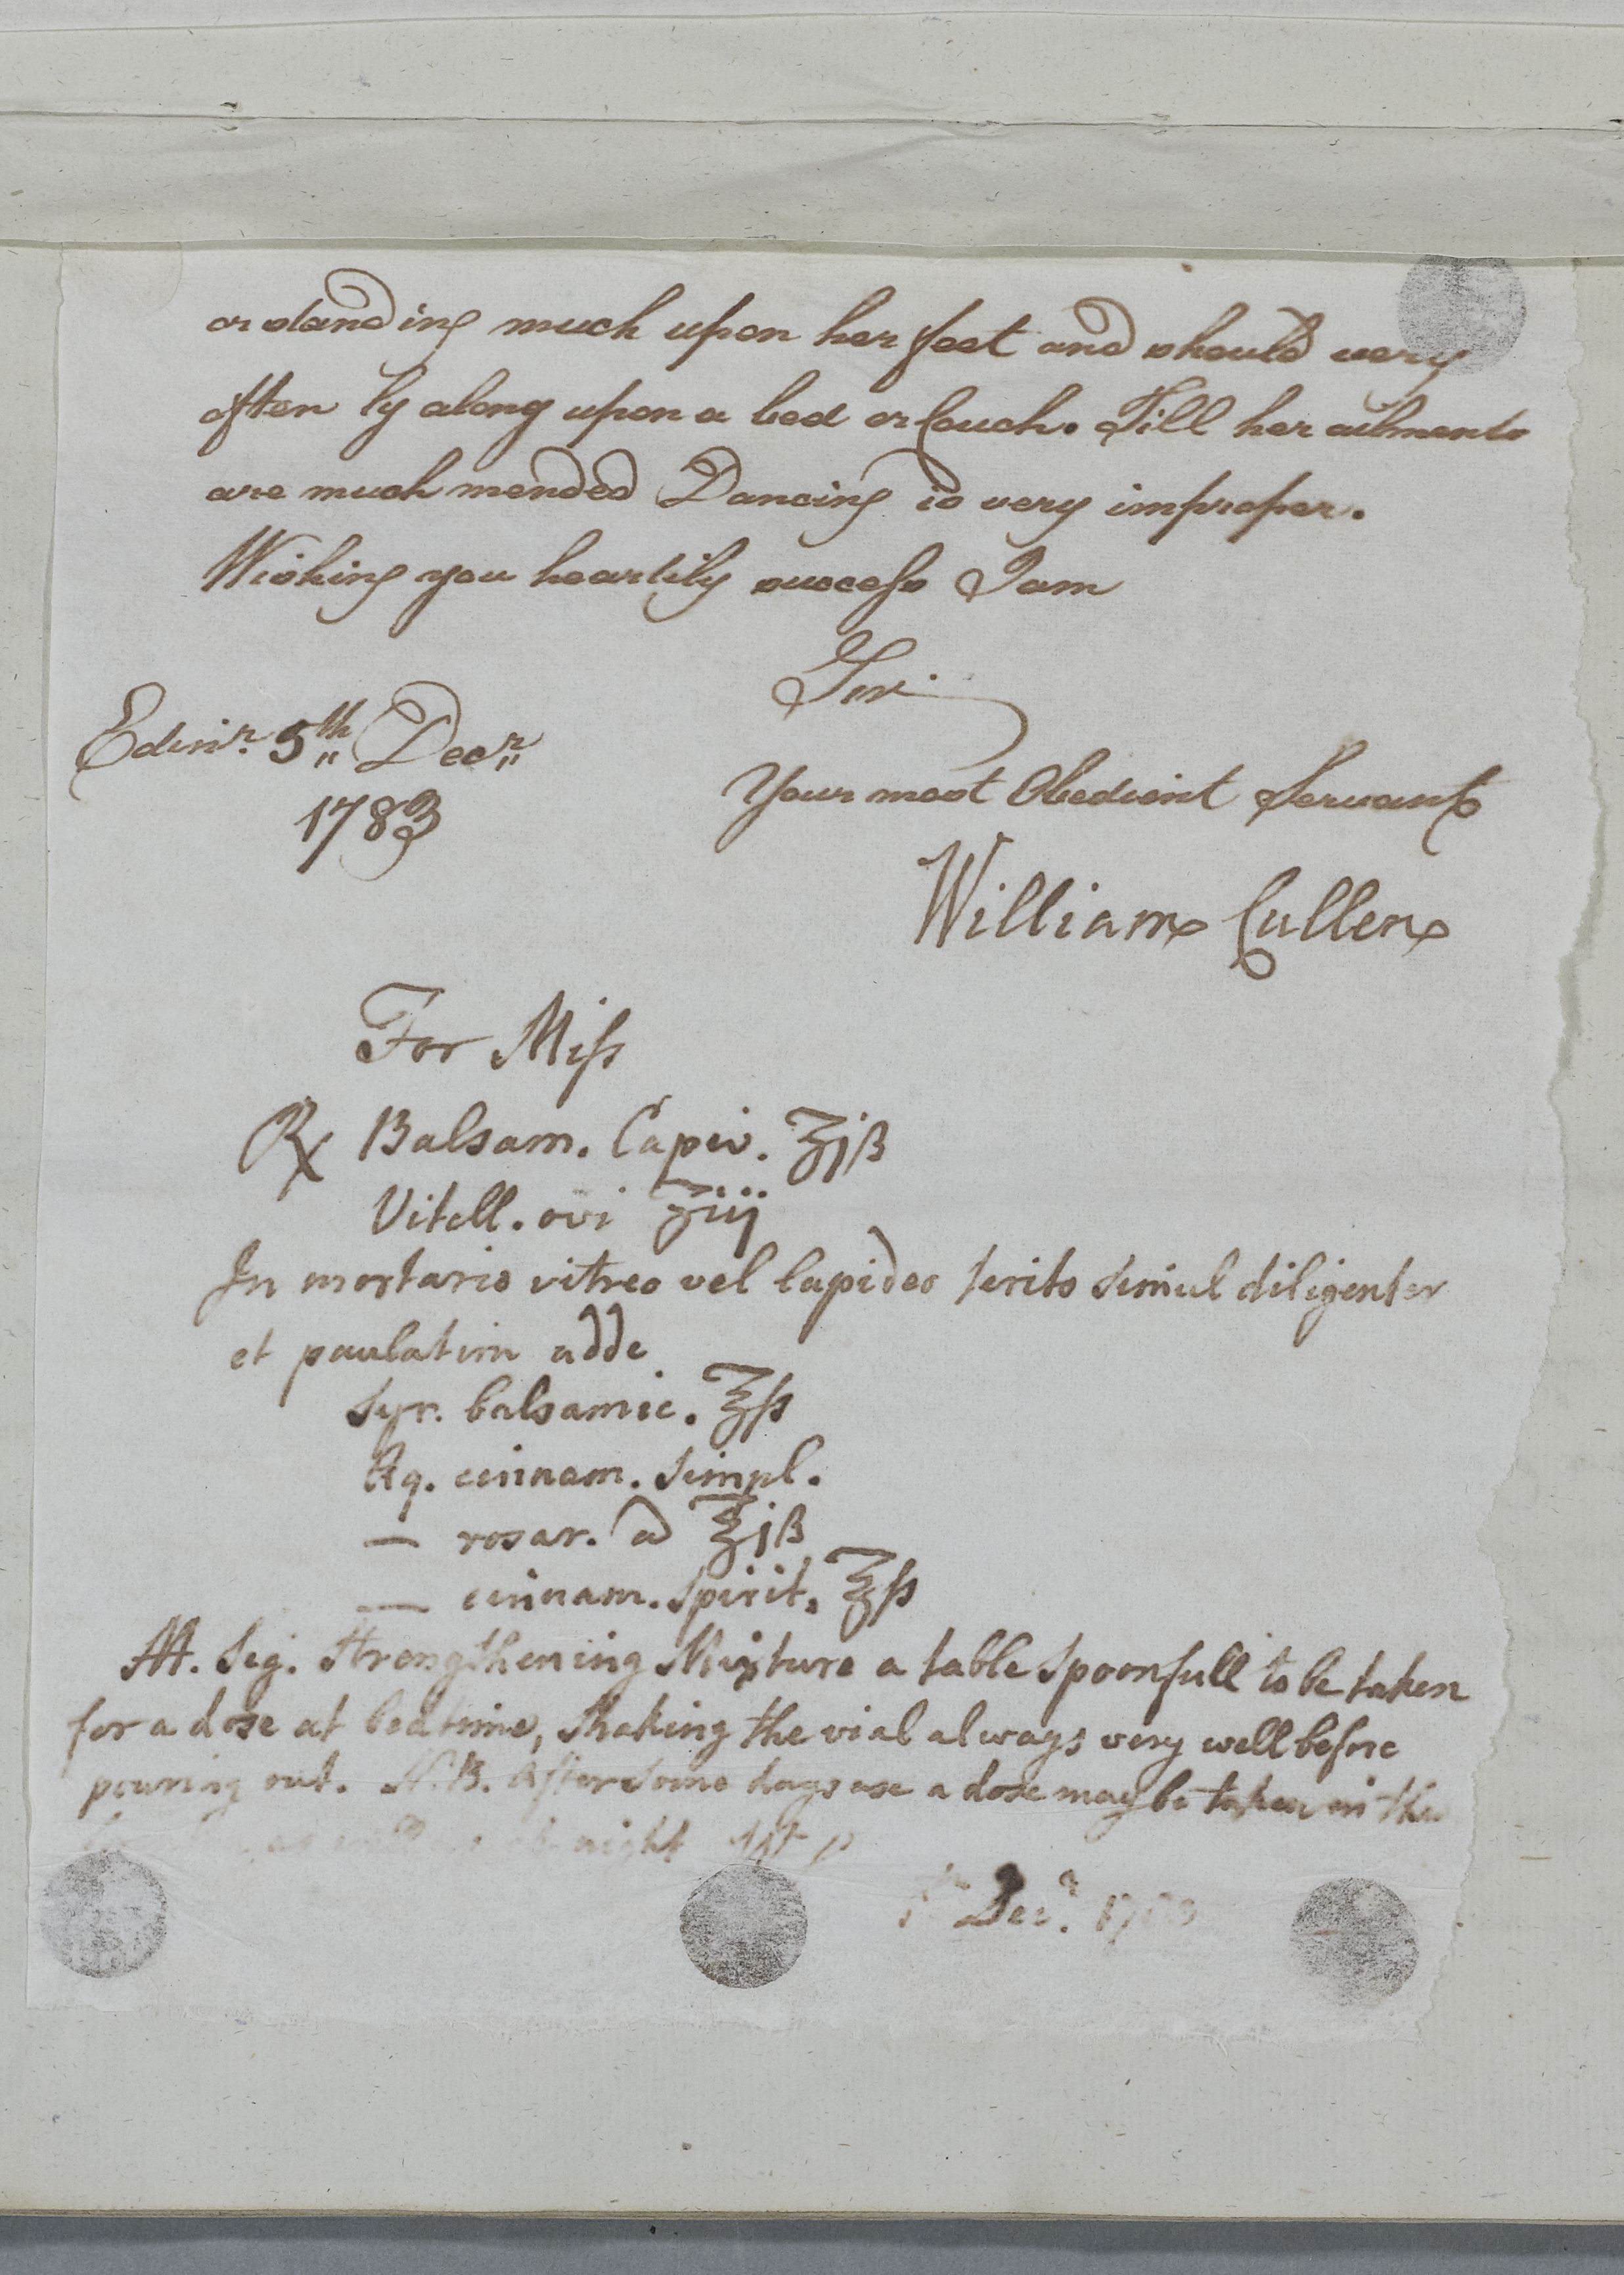 or standing much upon her feet and should very
often ly along upon a bed or Couch. Till her ailments
are much mended Dancing is very improper.
Wishing you heartily success I am
Sir.
Edinr. 5th Decr
1783
Your most Obedient Servant
William Cullen
For Miss
℞ Balsam. Capiv. ʒjß
Vitell. ovi ʒiij
In mortario vitreo vel lapideo terito simul diligenter
et paulatim adde
Syr. balsamic. ℥ss
Aq. cinnam. simpl.
— rosar. a ℥jß
— cinnam. spirit. ℥ss
M. Sig. Strengthening Mixture a table spoonfull to be taken
for a dose at bedtime, shaking the vial always very well before
pouring out. N.B. After some days use a dose may be taken in the
at night
Decr. 1783